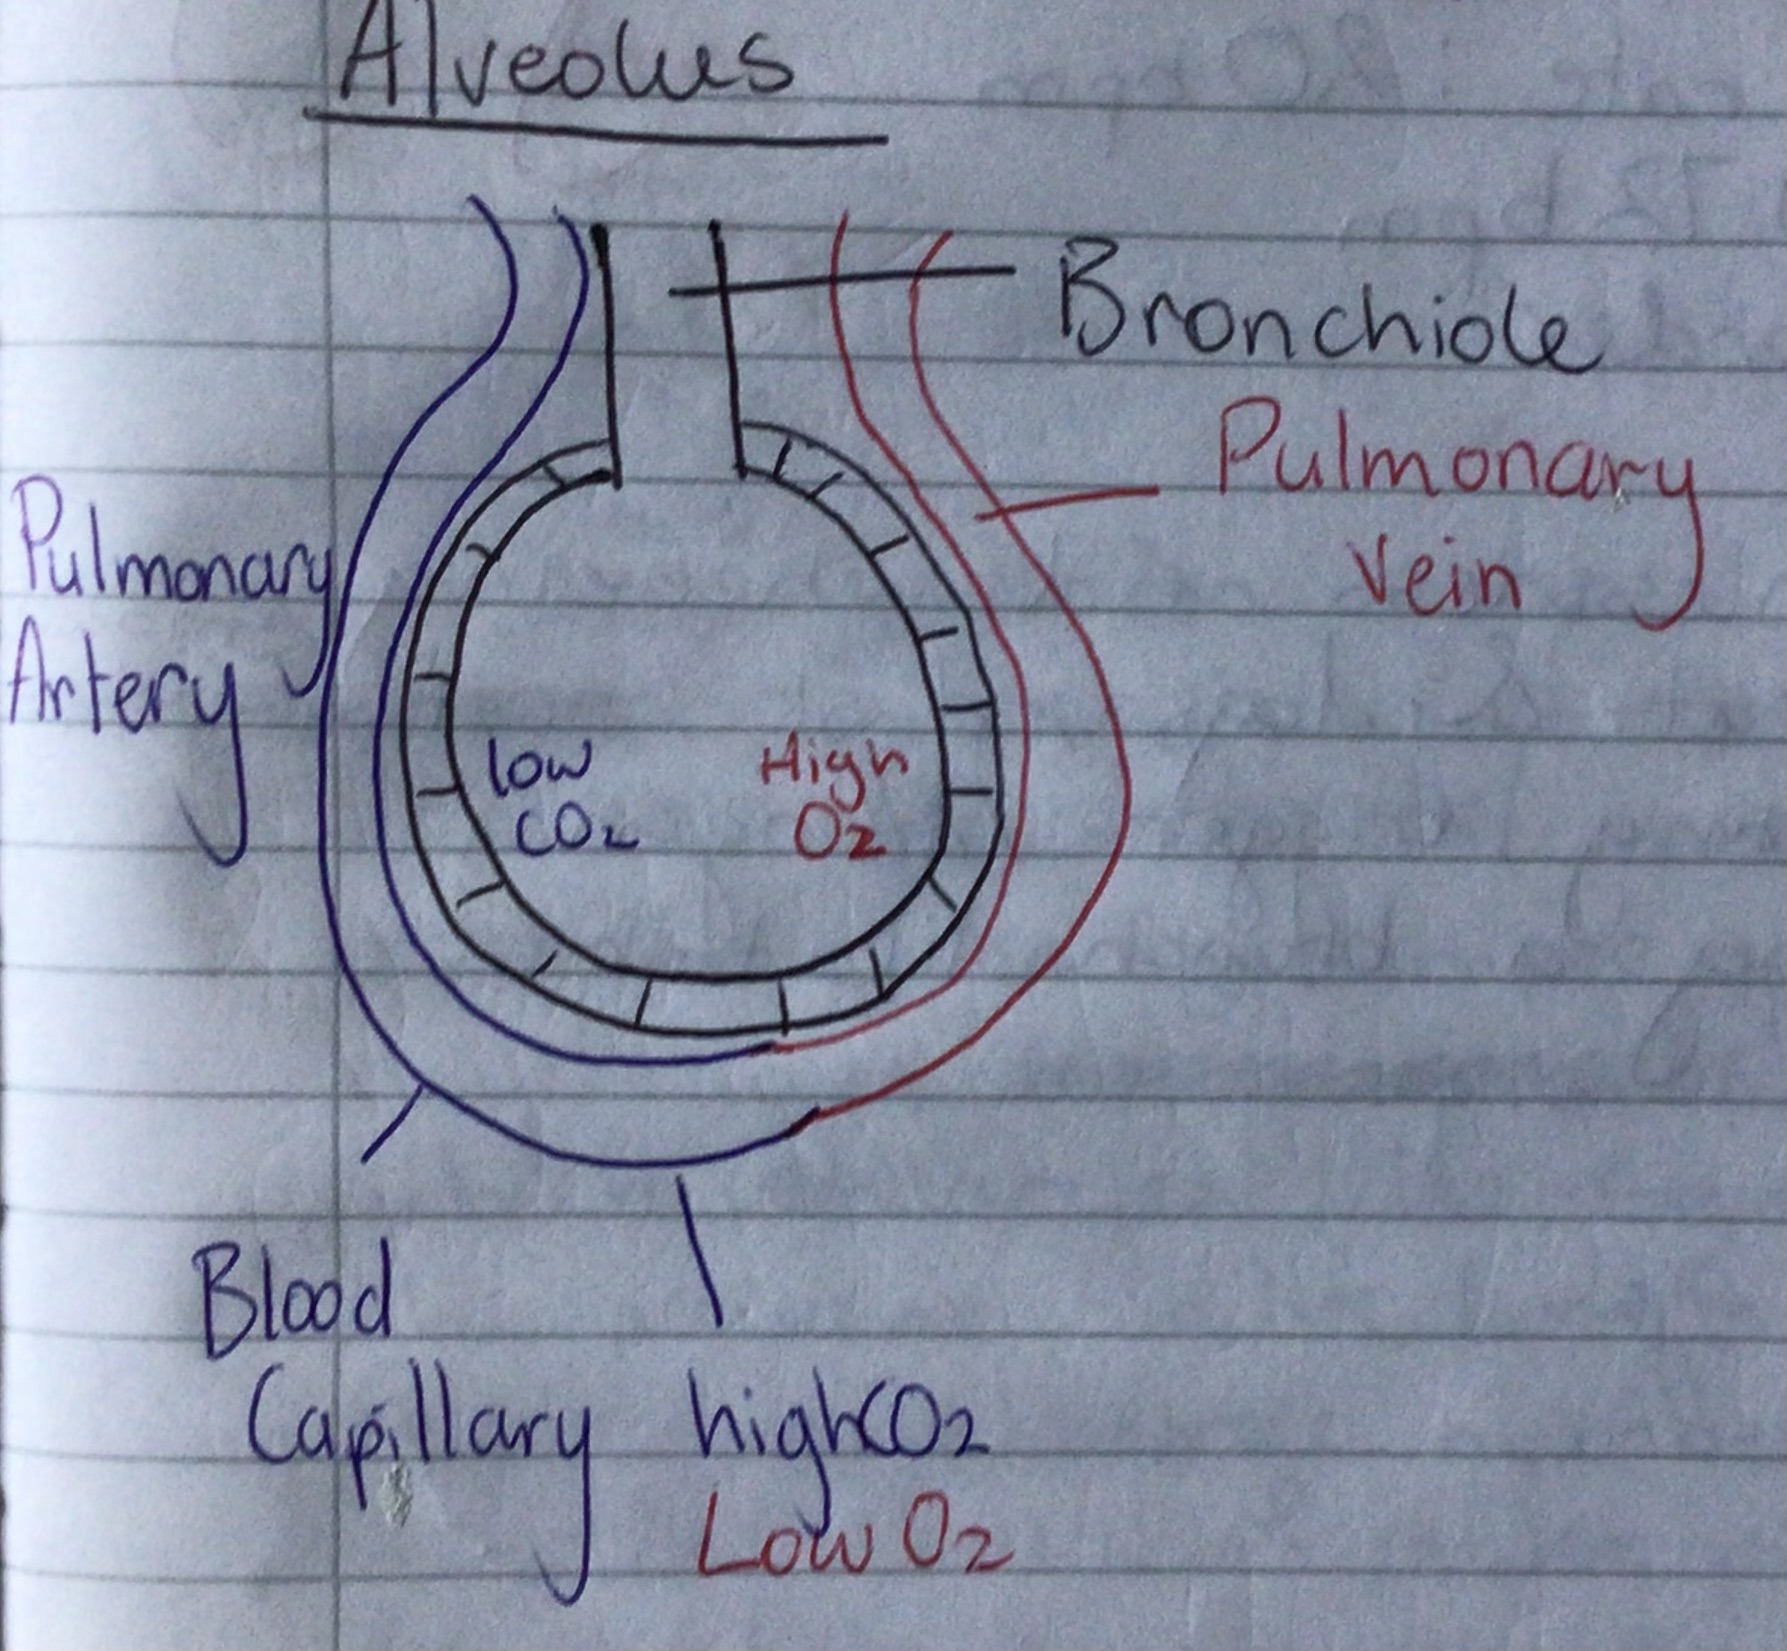 Alveolus
Bronchiole
Pulmonary
Vein
Pulmonary
Artery
low
CO2
High
O2
Blood
Capillary
high CO2
Low O2